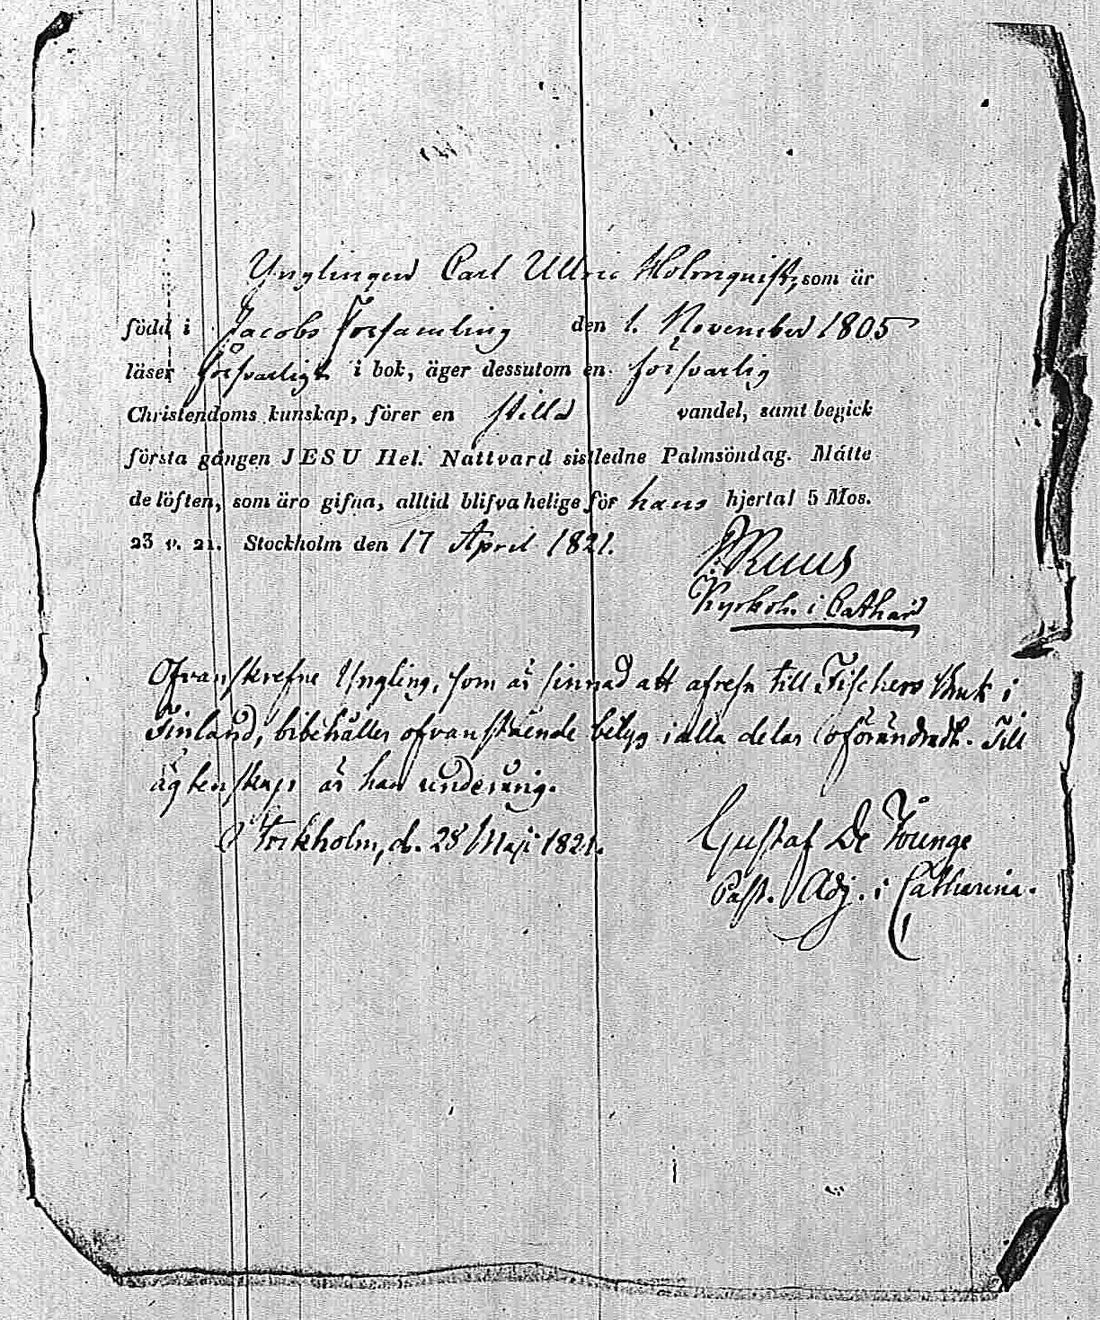 Ynglingen Carl Ullric Holmquist, som är
född i Jacobs Församling den 1. November 1805
läser försvarligt i bok, äger dessutom en försvarlig
Christendoms kunskap, förer en stilla vandel, samt begick
första gången JESU Hel. Nattvard sistledne Palmsöndag. Måtte
de löften, som äro gifna, alltid blifva helige för hans hjerta! 5 Mos.
23 v. 21. Stockholm den 17 April 1821.
Ruus
Kyrkoh. i Cathar
Ofvanskrefne Yngling, som är sinnad att afresa till Fischers Bruk i
Finland, bibehåller ofvanstående betyg i alla delar oförändradt. Till
ägtenskap är han underårig.
Stockholm, d. 28 Maji 1821.
Gustaf De Younge
Past. Adj. i Catharina.